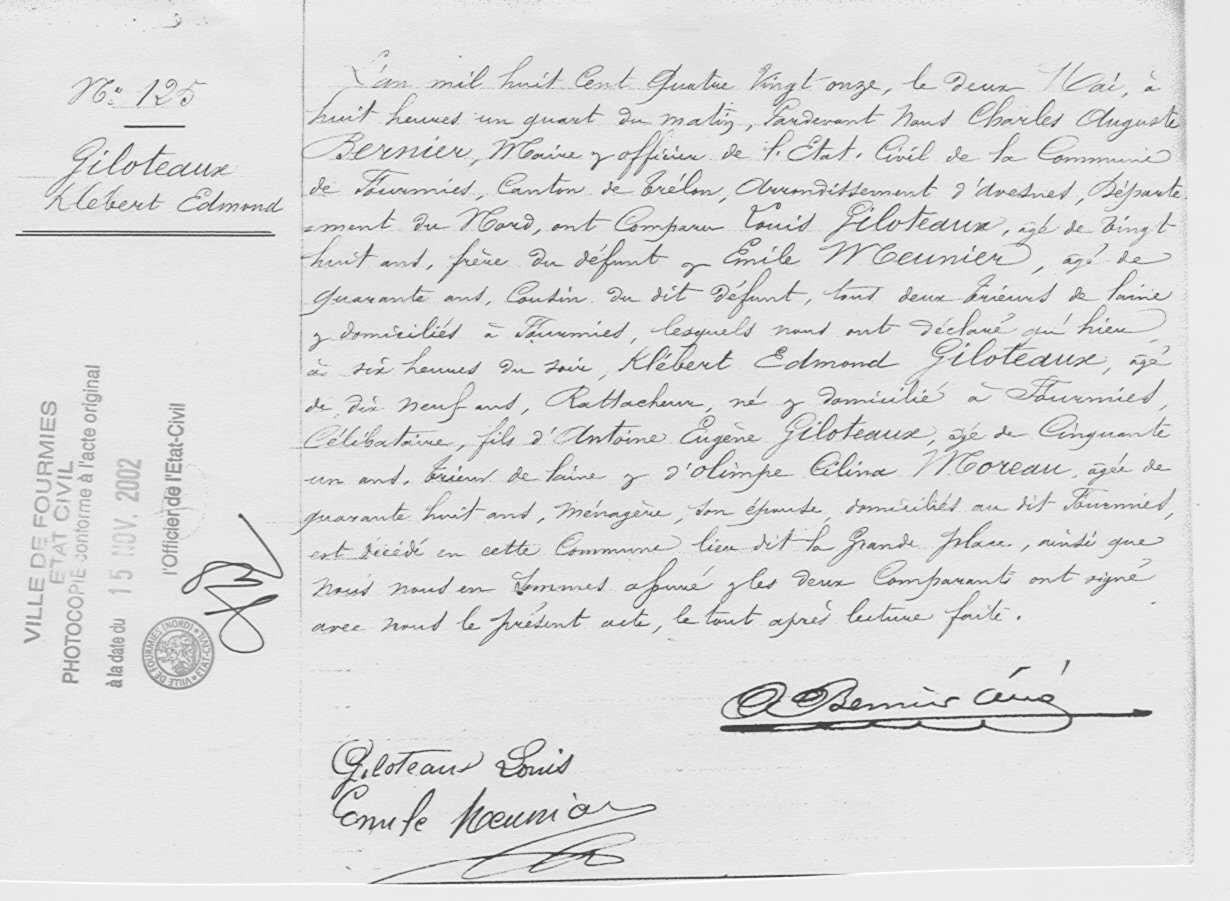 N° 125
Giloteaux
Klébert Edmond
L'an mil huit Cent Quatre Vingt onze, le deux Mai, à
huit heures un quart du matin, Pardevant Nous Charles Auguste
Bernier, Maire & officier de l'Etat-Civil de la Commune
de Fourmies, Canton de Trélon, Arrondissement d'Avesnes, Départe
=ment du Nord, ont Comparu Louis Giloteaux, âgé de Vingt
huit ans, frère du défunt & Emile Meunier, âgé de
Quarante ans, Cousin du dit défunt, tous deux trieurs de laine
& domiciliés à Fourmies, lesquels nous ont déclaré qu'hier,
à six heures du soir, Klébert Edmond Giloteaux, âgé
de dix neuf ans, Rattacheur, né & domicilié à Fourmies,
Célibataire, fils d'Antoine Eugène Giloteaux, âgé de Cinquante
un ans, trieur de laine & d'Olimpe Cilina Moreau, âgée de
quarante huit ans, Ménagère, son épouse, domiciliés au dit Fourmies,
est décédé en cette Commune lieu dit la Grande place, ainsi que
Nous nous en sommes assuré & les deux Comparants ont signé
avec nous le présent acte, le tout après lecture faite.
A Bernier
Giloteaux Louis
Emile Meunier
VILLE DE FOURMIES
ETAT CIVIL
PHOTOCOPIE conforme à l'acte original
à la date du 15 NOV. 2002
l'Officier de l'Etat-Civil
VILLE DE FOURMIES (NORD) * ETAT-CIVIL *